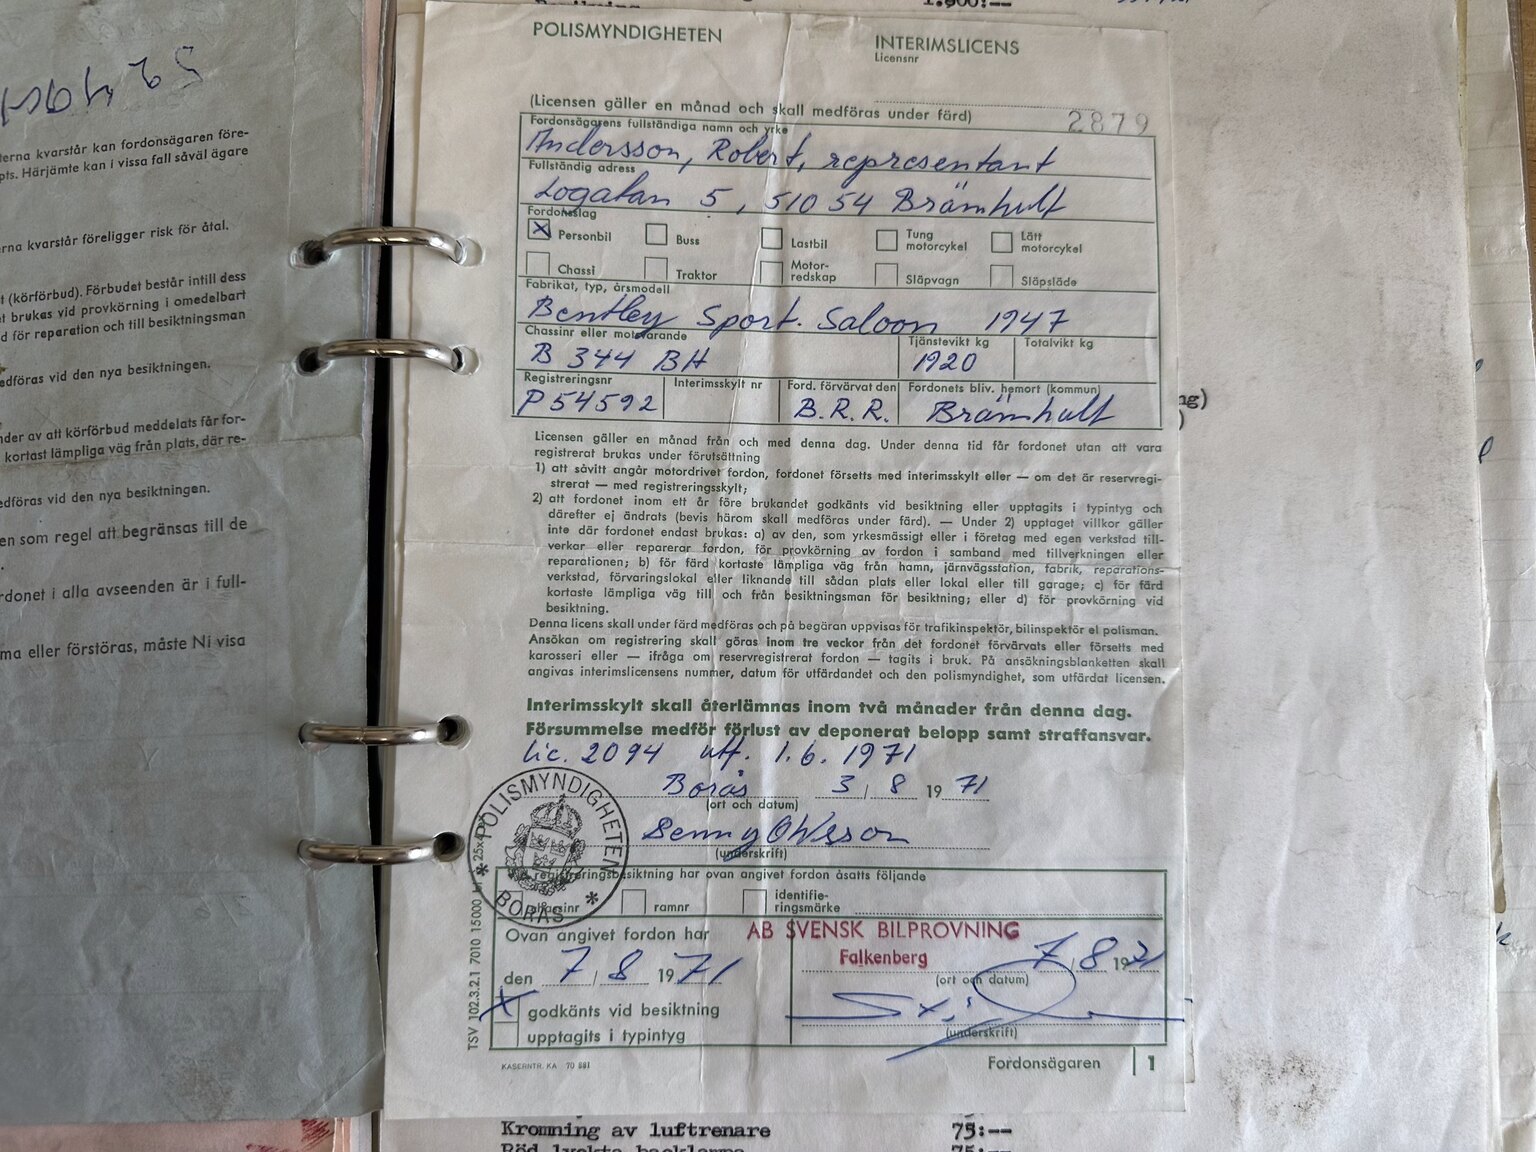 1.900:--
52495
terna kvarstår kan fordonsägaren före-
pts. Härjämte kan i vissa fall såväl ägare
erna kvarstår föreligger risk för åtal.
t (körförbud). Förbudet består intill dess
t brukas vid provkörning i omedelbart
d för reparation och till besiktningsman
edföras vid den nya besiktningen.
nder av att körförbud meddelats får for-
kortast lämpliga väg från plats, där re-
edföras vid den nya besiktningen.
en som regel att begränsas till de
rdonet i alla avseenden är i full-
ma eller förstöras, måste Ni visa
POLISMYNDIGHETEN
INTERIMSLICENS
Licensnr
(Licensen gäller en månad och skall medföras under färd)
2879
Fordonsägarens fullständiga namn och yrke
Andersson, Robert, representant
Fullständig adress
Logatan 5, 510 54 Brämhult
Fordonsslag
x Personbil Buss Lastbil Tung motorcykel Lätt motorcykel
Chassi Traktor Motor-redskap Släpvagn Släpsläde
Fabrikat, typ, årsmodell
Bentley Sport. Saloon 1947
Chassinr eller motsvarande Tjänstevikt kg Totalvikt kg
B 344 BH 1920
Registreringsnr Interimsskylt nr Ford. förvärvat den Fordonets bliv. hemort (kommun)
P54592 B.R.R. Brämhult
Licensen gäller en månad från och med denna dag. Under denna tid får fordonet utan att vara
registrerat brukas under förutsättning
1) att såvitt angår motordrivet fordon, fordonet försetts med interimsskylt eller — om det är reservregi-
strerat — med registreringsskylt;
2) att fordonet inom ett år före brukandet godkänts vid besiktning eller upptagits i typintyg och
därefter ej ändrats (bevis härom skall medföras under färd). — Under 2) upptaget villkor gäller
inte där fordonet endast brukas: a) av den, som yrkesmässigt eller i företag med egen verkstad till-
verkar eller reparerar fordon, för provkörning av fordon i samband med tillverkningen eller
reparationen; b) för färd kortaste lämpliga väg från hamn, järnvägsstation, fabrik, reparations-
verkstad, förvaringslokal eller liknande till sådan plats eller lokal eller till garage; c) för färd
kortaste lämpliga väg till och från besiktningsman för besiktning; eller d) för provkörning vid
besiktning.
Denna licens skall under färd medföras och på begäran uppvisas för trafikinspektör, bilinspektör el polisman.
Ansökan om registrering skall göras inom tre veckor från det fordonet förvärvats eller försetts med
karosseri eller — ifråga om reservregistrerat fordon — tagits i bruk. På ansökningsblanketten skall
angivas interimslicensens nummer, datum för utfärdandet och den polismyndighet, som utfärdat licensen.
Interimsskylt skall återlämnas inom två månader från denna dag.
Försummelse medför förlust av deponerat belopp samt straffansvar.
Lic. 2094 utf. 1.6. 1971
Borås 3 / 8 1971
(ort och datum)
Benny Ohlsson
(underskrift)
* POLISMYNDIGHETEN * BORÅS
registreringsbesiktning har ovan angivet fordon åsatts följande
chassinr ramnr identifie-ringsmärke
Ovan angivet fordon har
AB SVENSK BILPROVNING
Falkenberg 7/8 1971
den 7 / 8 1971
(ort och datum)
x godkänts vid besiktning
(underskrift)
upptagits i typintyg
TSV 102.3.2.1 7010 15000
KASERNTR. KA 70 881
Fordonsägaren 1
ng)
)
Kromning av luftrenare 75:--